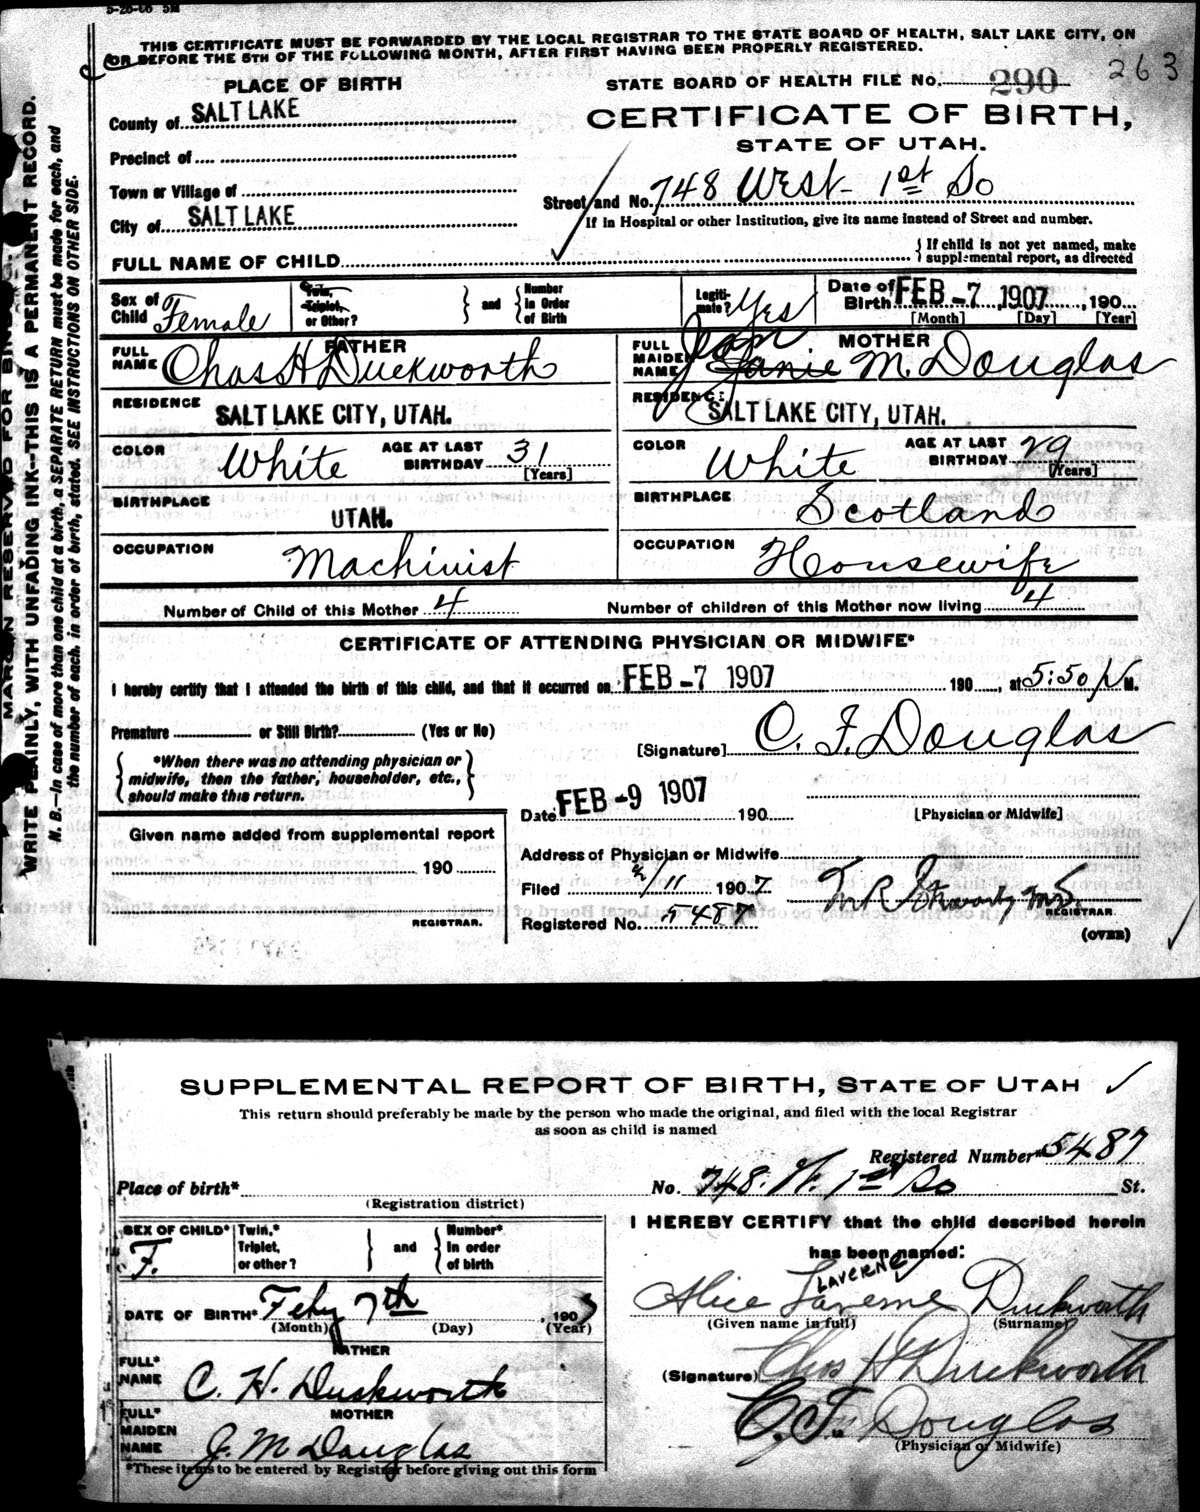 5-26-06 5M
THIS CERTIFICATE MUST BE FORWARDED BY THE LOCAL REGISTRAR TO THE STATE BOARD OF HEALTH, SALT LAKE CITY, ON
OR BEFORE THE 5TH OF THE FOLLOWING MONTH, AFTER FIRST HAVING BEEN PROPERLY REGISTERED.
263
PLACE OF BIRTH
STATE BOARD OF HEALTH FILE No. 290
County of SALT LAKE
CERTIFICATE OF BIRTH,
STATE OF UTAH.
Precinct of
Town or Village of
Street and No. 748 West 1st So
City of SALT LAKE
If in Hospital or other Institution, give its name instead of Street and number.
FULL NAME OF CHILD
If child is not yet named, make
supplemental report, as directed
Sex of Child Female
Twin, Triplet, or Other?
and
Number in Order of Birth
Legitimate? Yes
Date of Birth FEB -7 1907, 190
[Month] [Day] [Year]
FATHER
FULL NAME Chas H Duckworth
MOTHER
FULL MAIDEN NAME Jean Janie M. Douglas
RESIDENCE SALT LAKE CITY, UTAH.
RESIDENCE SALT LAKE CITY, UTAH.
COLOR White AGE AT LAST BIRTHDAY 31 [Years]
COLOR White AGE AT LAST BIRTHDAY 29 [Years]
BIRTHPLACE UTAH.
BIRTHPLACE Scotland
OCCUPATION Machinist
OCCUPATION Housewife
Number of Child of this Mother 4
Number of children of this Mother now living 4
CERTIFICATE OF ATTENDING PHYSICIAN OR MIDWIFE*
I hereby certify that I attended the birth of this child, and that it occurred on FEB -7 1907 190, at 5:50 P M.
Premature or Still Birth? (Yes or No)
[Signature] C. F. Douglas
*When there was no attending physician or
midwife, then the father, householder, etc.,
should make this return.
Date FEB -9 1907 190
[Physician or Midwife]
Given name added from supplemental report
190
REGISTRAR.
Address of Physician or Midwife
Filed 2/11 1907
Registered No. 5487
REGISTRAR.
(OVER)
MARGIN RESERVED FOR BINDING.
WRITE PLAINLY, WITH UNFADING INK—THIS IS A PERMANENT RECORD.
N. B.—In case of more than one child at a birth, a SEPARATE RETURN must be made for each, and
the number of each, in order of birth, stated. SEE INSTRUCTIONS ON OTHER SIDE.
SUPPLEMENTAL REPORT OF BIRTH, STATE OF UTAH
This return should preferably be made by the person who made the original, and filed with the local Registrar
as soon as child is named
Registered Number* 5487
Place of birth*
(Registration district)
No. 748. W. 1st So St.
SEX OF CHILD* F.
Twin,* Triplet, or other?
and
Number* In order of birth
I HEREBY CERTIFY that the child described herein
has been named:
LAVERNE
Alice Laverne Duckworth
(Given name in full) (Surname)
DATE OF BIRTH* Feby 7th, 1907
(Month) (Day) (Year)
FATHER
FULL* NAME C. H. Duckworth
(Signature) Chas H Duckworth
MOTHER
FULL* MAIDEN NAME J. M Douglas
C. F. Douglas
(Physician or Midwife)
*These items to be entered by Registrar before giving out this form